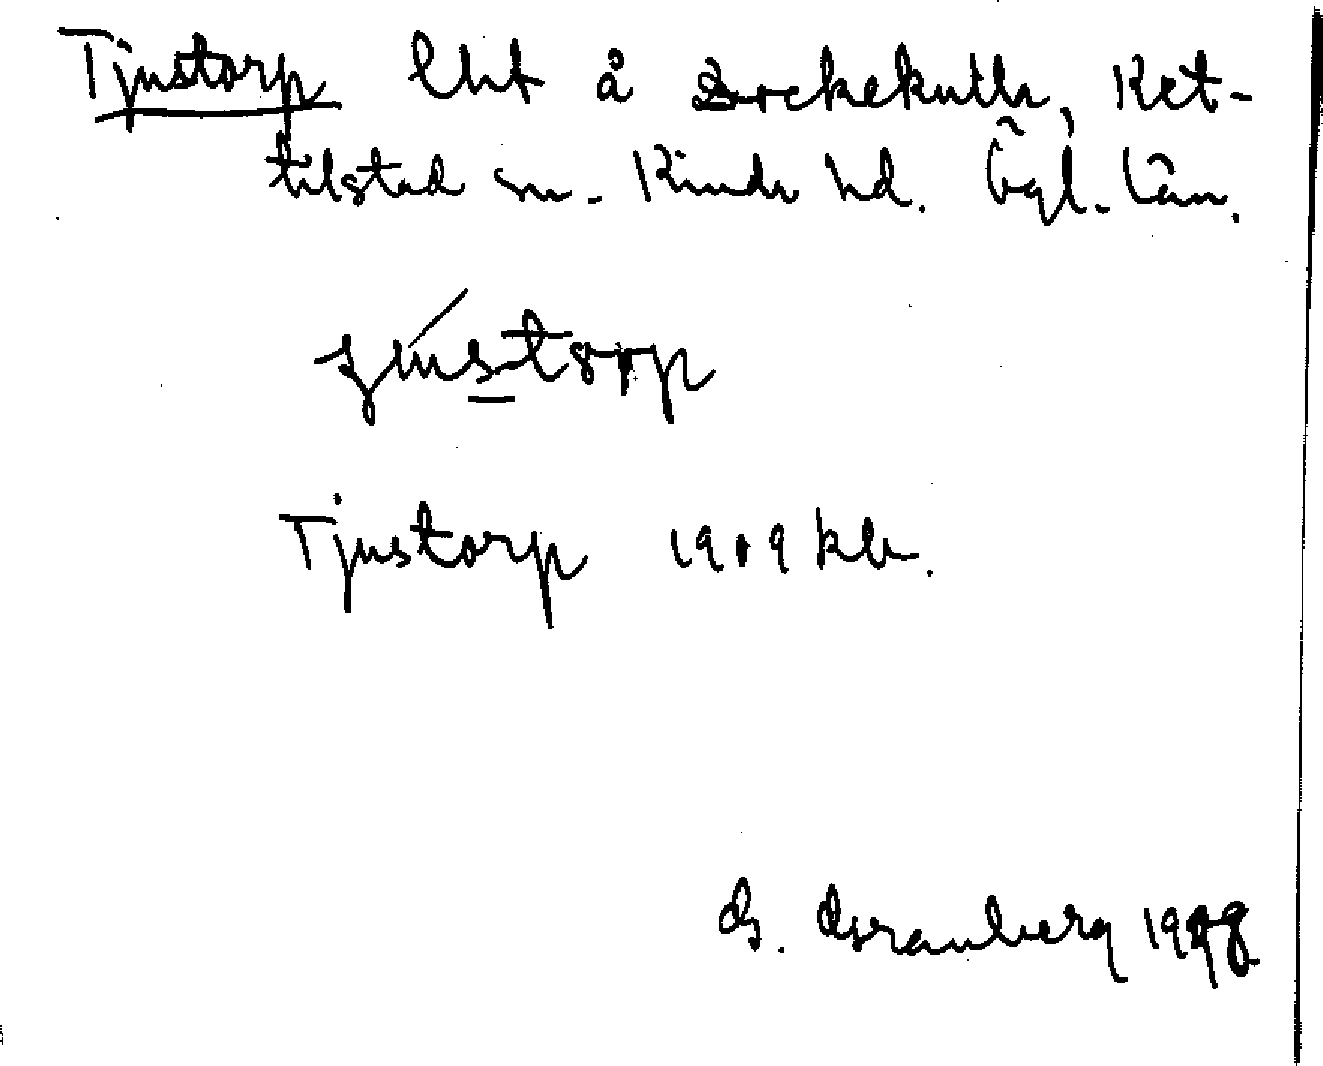 Tjustorp lht å Brckekulla, Ket-
tilstad sn. Kinds hd. Ögl. län.
Tjustorp 1909 kb.
G. Granberg 1928